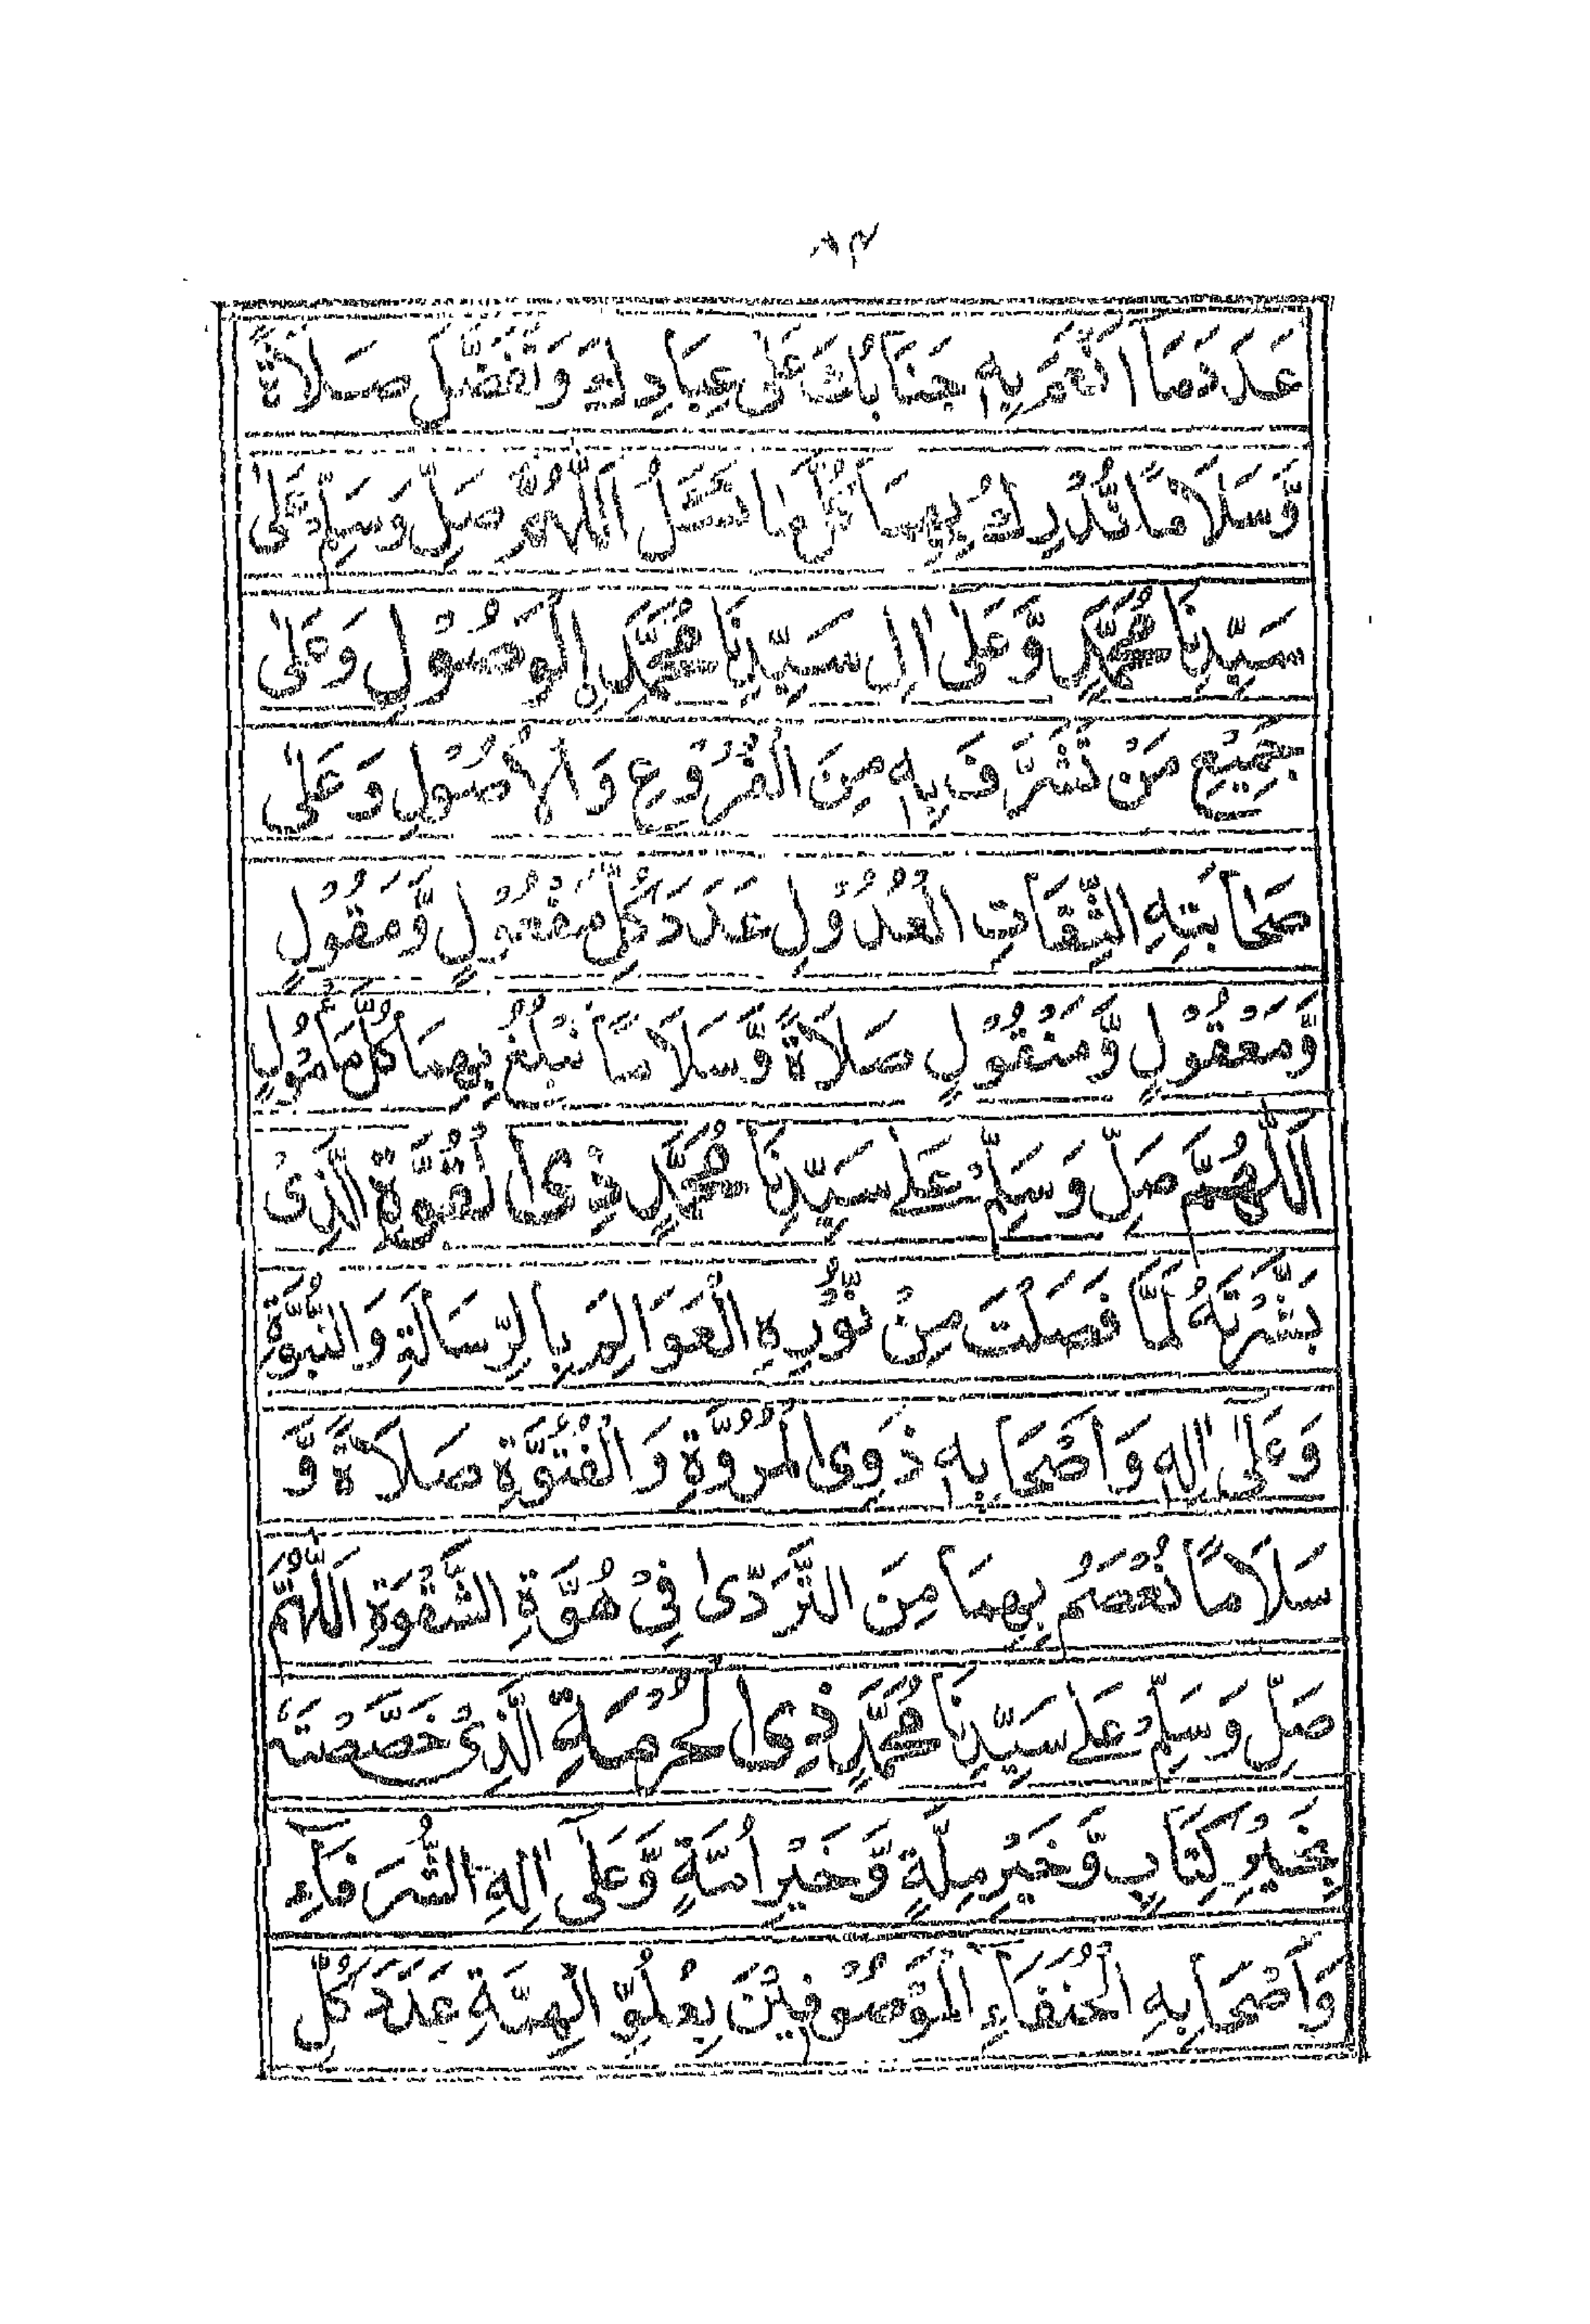 ۸۴
عَدَدَ مَا اَنْعَمَ بِهٖ جَنَابُكَ عَلٰى عِبَادِكَ وَتَفَضَّلَ صَلَاةً
وَّسَلَامًا نُّدْرِكُ بِهِمَا كُلَّ مَا نَسْئَلُ اَللّٰهُمَّ صَلِّ وَسَلِّمْ عَلٰى
سَيِّدِنَا مُحَمَّدٍ وَّعَلٰى اٰلِ سَيِّدِنَا مُحَمَّدِ ِالْوَصُوْلِ وَعَلٰى
جَمِيْعِ مَنْ تَشَرَّفَ بِهٖ مِنَ الْفُرُوْعِ وَالْاُصُوْلِ وَعَلٰى
صَحَابَتِهِ الثِّقَاتِ الْعُدُوْلِ عَدَدَ كُلِّ مَفْعُوْلٍ وَّمَقُوْلٍ
وَّمَعْقُوْلٍ وَّمَنْقُوْلٍ صَلَاةً وَّسَلَامًا نَبْلُغُ بِهِمَا كُلَّ مَأْمُوْلٍ
اَللّٰهُمَّ صَلِّ وَسَلِّمْ عَلٰے سَيِّدِنَا مُحَمَّدٍ ذِى الْقُوَّةِ الَّذِىْ
بَشَّرْتَهٗ لَمَّا فَصَلْتَ مِنْ نُّوْرِهِ الْعَوَالِمَ بِالرِّسَالَةِ وَالنُّبُوَّةِ
وَعَلٰى اٰلِهٖ وَاَصْحَابِهٖ ذَوِى الْمُرُوَّةِ وَالْفُتُوَّةِ صَلَاةً وَّ
سَلَامًا نُعْصَمُ بِهِمَا مِنَ التَّرَدّٰى فِىْ هُوَّةِ الشَّقْوَةِ اَللّٰهُمَّ
صَلِّ وَسَلِّمْ عَلٰے سَيِّدِنَا مُحَمَّدٍ ذِى الْحُرْمَةِ الَّذِىْ خَصَّصْتَهٗ
بِخَيْرِ كِتَابٍ وَّخَيْرِ مِلَّةٍ وَّخَيْرِ اُمَّةٍ وَّعَلٰٓى اٰلِهِ الشُّرَفَآءِ
وَاَصْحَابِهِ الْحُنَفَآءِ الْمَوْصُوْفِيْنَ بِعُلُوِّ الْهِمَّةِ عَدَدَ كُلِّ